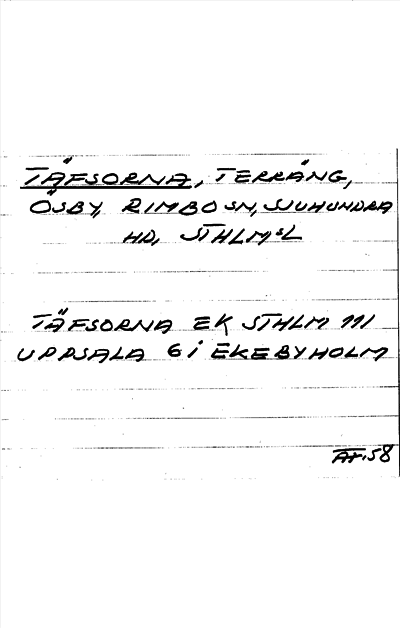 TÄFSORNA, TERRÄNG,
ÖSBY, RIMBO SN, SJUHUNDRA
HD, STHLMSL
TÄFSORNA EK STHLM 111
UPPSALA 6 i EKEBYHOLM
AF.58